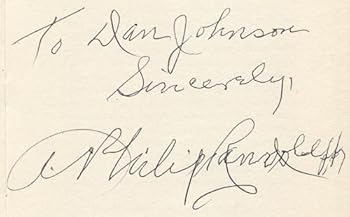 To Dan Johnson
Sincerely,
A. Philip Randolph